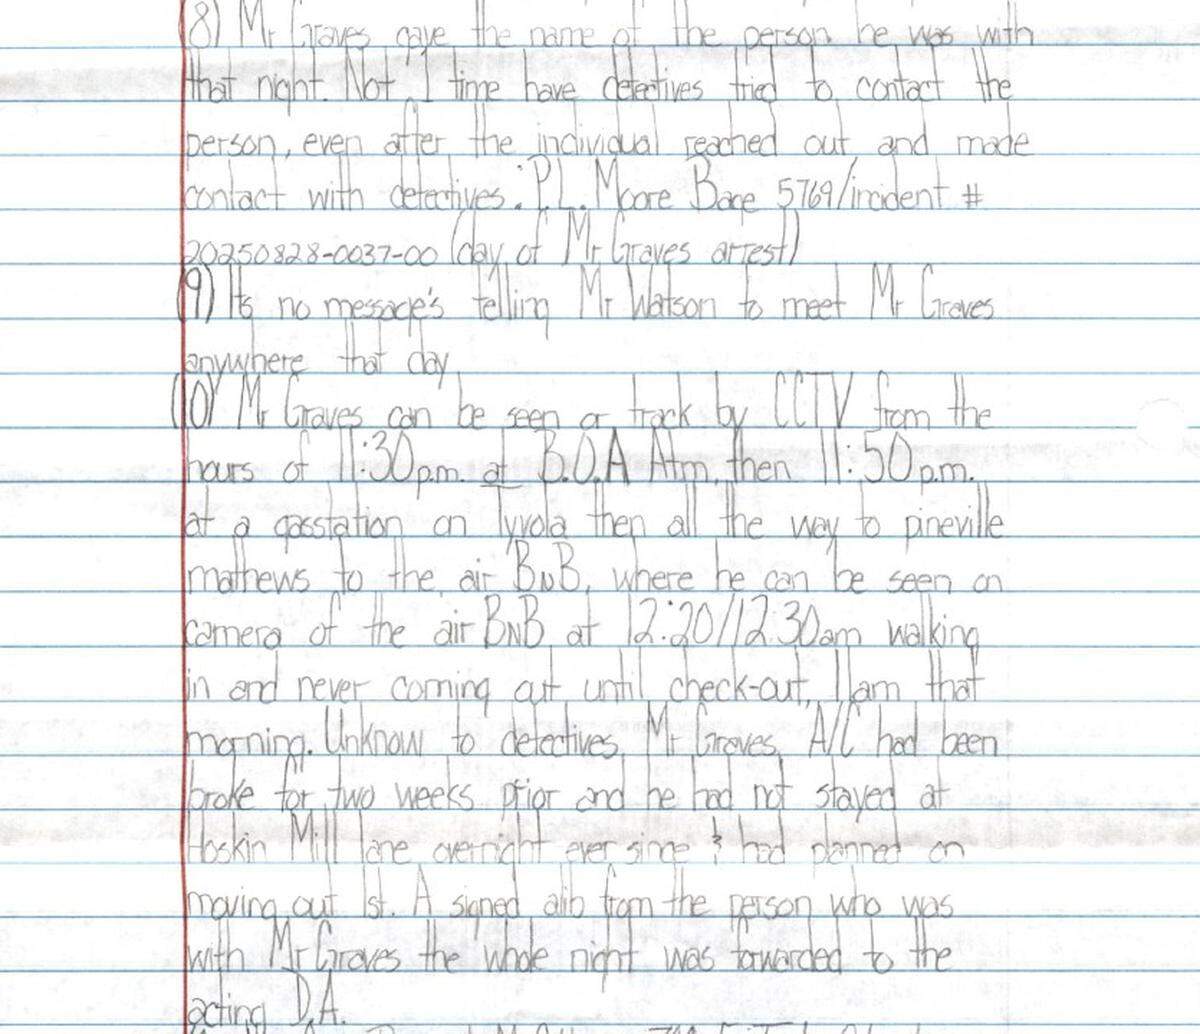 8) Mr Graves gave the name of the person he was with
that night. Not 1 time have detectives tried to contact the
person, even after the individual reached out and made
contact with detectives: P.L. Moore Bage 5769/incident #
20250828-0037-00 (day of Mr Graves arrest)
(9) Its no message's telling Mr Watson to meet Mr Graves
anywhere that day
(10) Mr Graves can be seen or track by CCTV from the
hours of 11:30p.m. at B.O.A Atm, then 11:50p.m.
at a gasstation on Tyvola then all the way to pineville
mathews to the air BNB, where he can be seen on
camera of the air BNB at 12:20//12:30am walking
in and never coming out until check-out, 11am that
morning. Unknow to detectives, Mr Graves, A/C had been
broke for two weeks prior and he had not stayed at
Hoskin Mill lane overnight ever since & had planned on
moving out 1st. A signed alib from the person who was
with Mr Graves the whole night was forwarded to the
acting D.A.